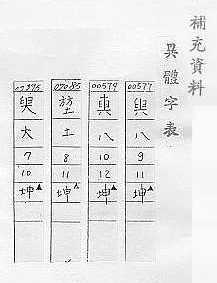 補充資料
異體字表
00577
八
9
11
坤▲
00579
八
10
12
坤▲
07085
堃
土
8
11
坤▲
大
7
10
坤▲